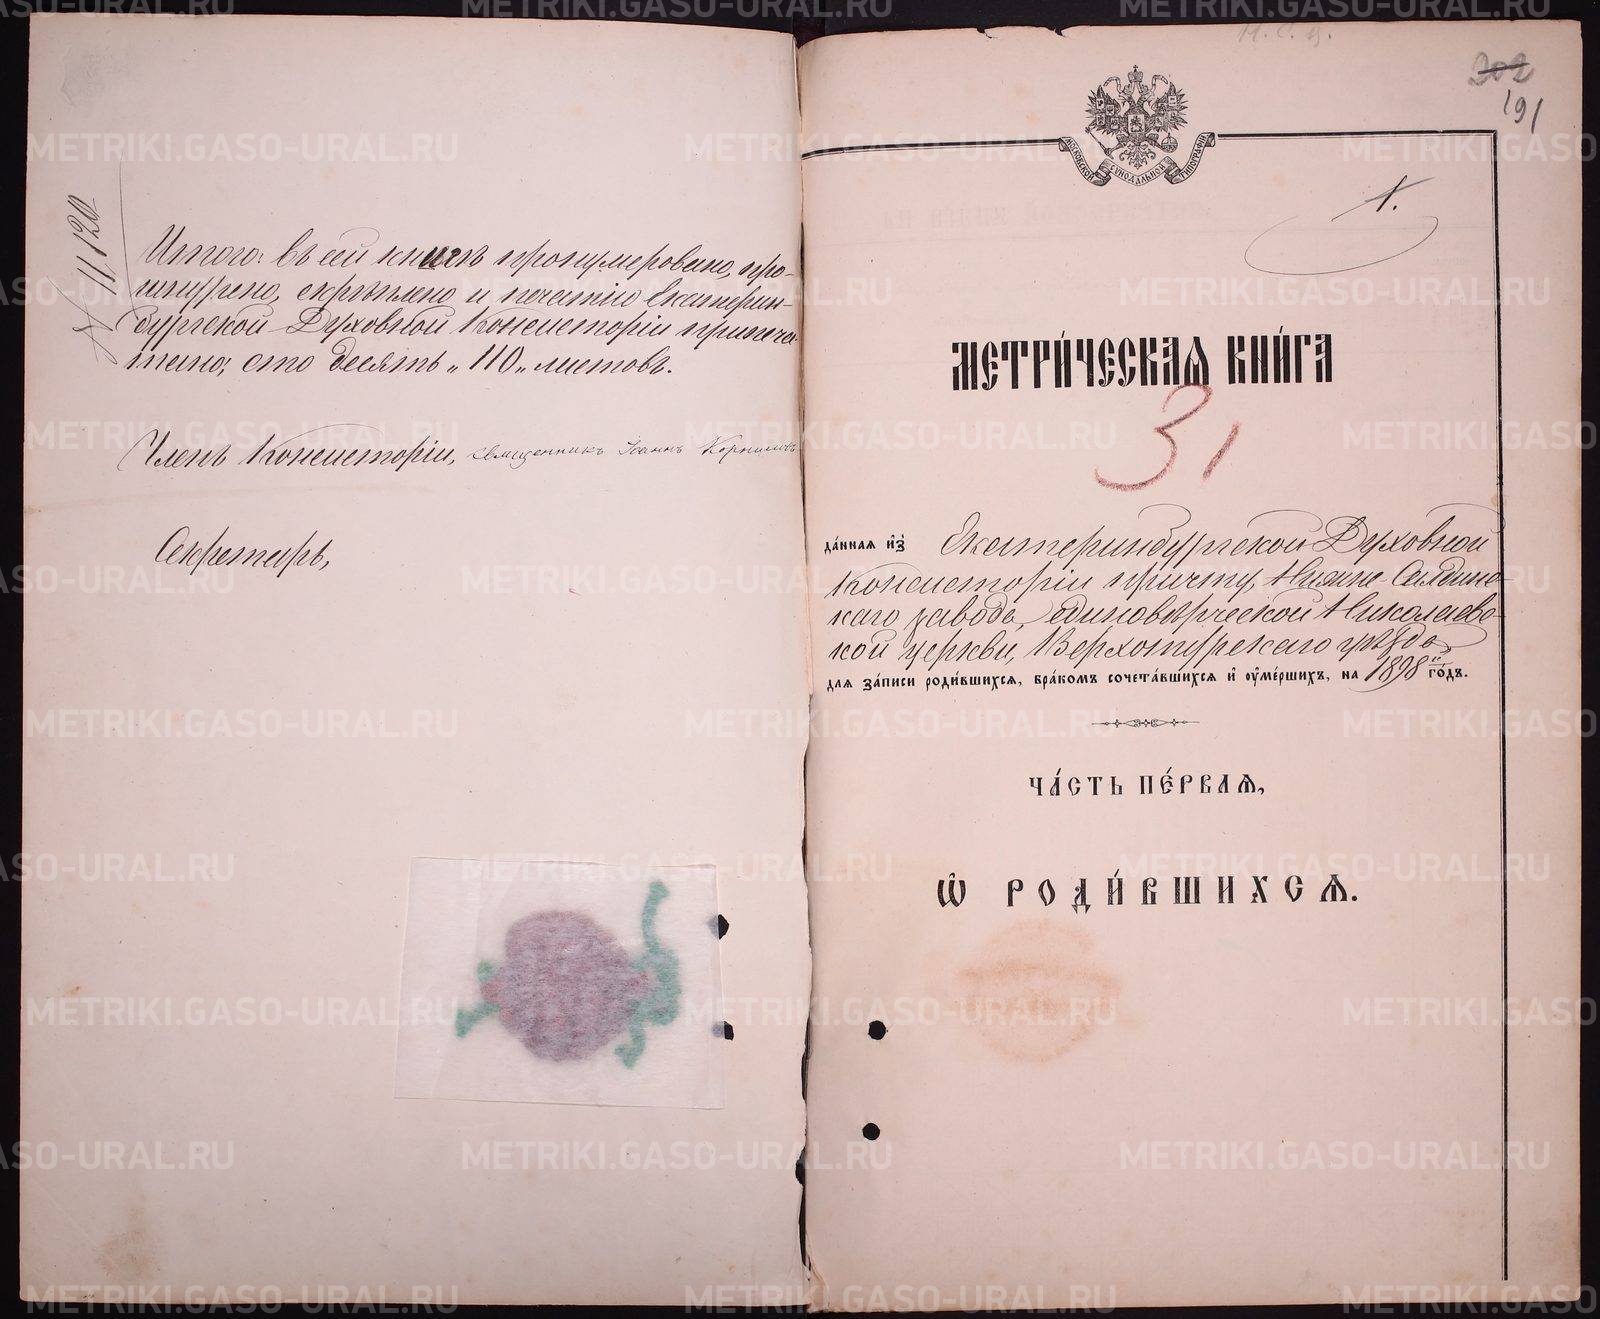 № 11,120
Итого: въ сей книгѣ пронумеровано, про-
шнурено, скрѣплено и печатью Екатерин-
бургской Духовной Консисторіи припеча-
тано, сто десять „110„ листовъ.
Членъ Консисторіи, священникъ Іоаннъ Корниловъ
Секретарь,
Н.С.З.
202
191
МОСКОВСКОЙ СѴНОДАЛЬНОЙ ТИПОГРАФІИ
1.
МЕТРИ́ЧЕСКАѦ КНИ́ГА
31
да́ннаѧ и҆з̾ Екатеринбургской Духовной
Консисторіи причту, Нижне-Салдинс-
каго завода, единовѣрческой Николаевс-
кой церкви, Верхотурскаго уѣзда
длѧ за́писи роди́вшихсѧ, бра́комъ сочета́вшихсѧ и҆ ᲂу҆ме́ршихъ, на 1898й го́дъ.
ЧА́СТЬ ПЕ́РВАѦ,
Ѽ РОДИ́ВШИХСѦ.
METRIKI.GASO-URAL.RU